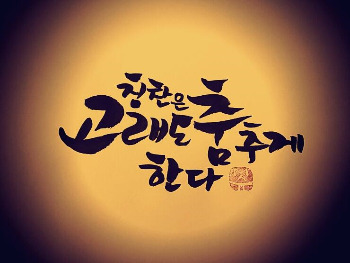 칭찬은
고래도 춤추게
한다